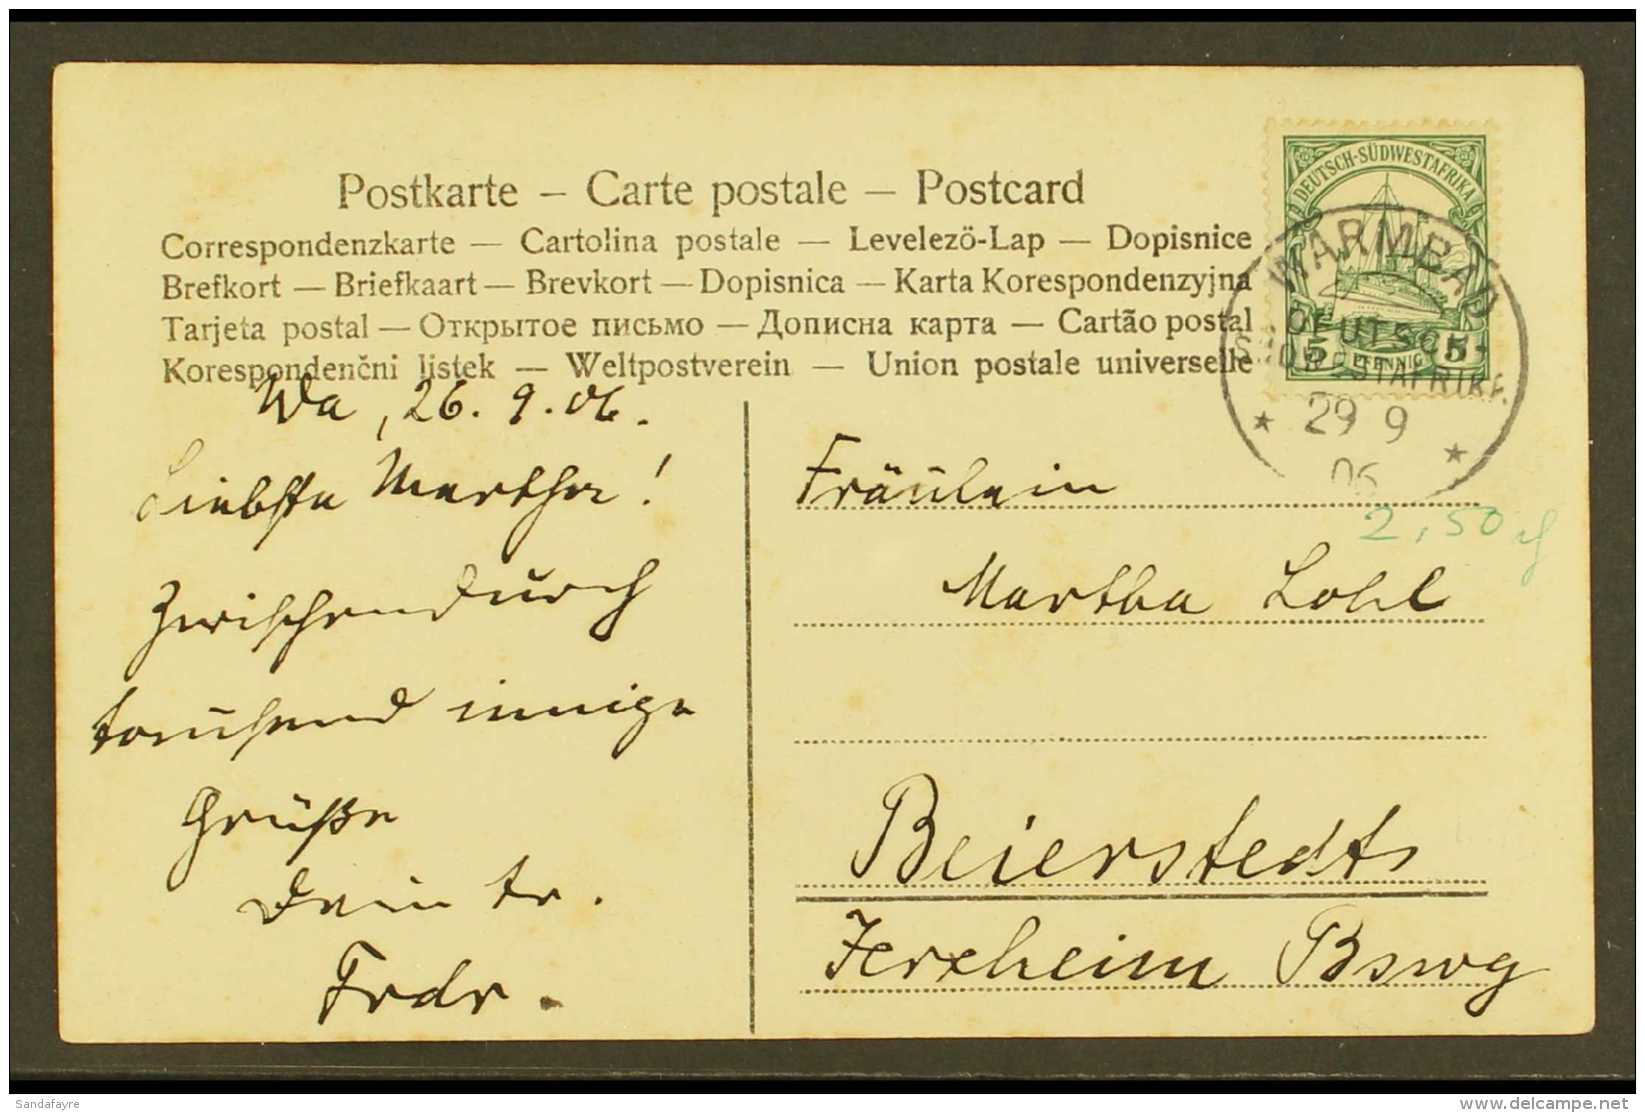 Postkarte – Carte postale – Postcard
Correspondenzkarte — Cartolina postale — Levelező-Lap — Dopisnice
Brefkort — Briefkaart — Brevkort — Dopisnica — Karta Korespondenzyjna
Tarjeta postal — Открытое письмо — Дописна карта — Cartão postal
Korespondenčni listek — Weltpostverein — Union postale universelle
DEUTSCH-SÜDWESTAFRIKA
5 PFENNIG 5
WARMBAD
DEUTSCH-
SÜDWESTAFRIKA
* 29 9 *
06
Wa, 26. 9. 06.
Liebste Martha!
Zwischendurch
tausend innige
Grüße
Dein tr.
Frdr.
2,50
Fräulein
Martha Lohl
Beierstedt
Jerxheim Bswg
Sandafayre
www.delcampe.net